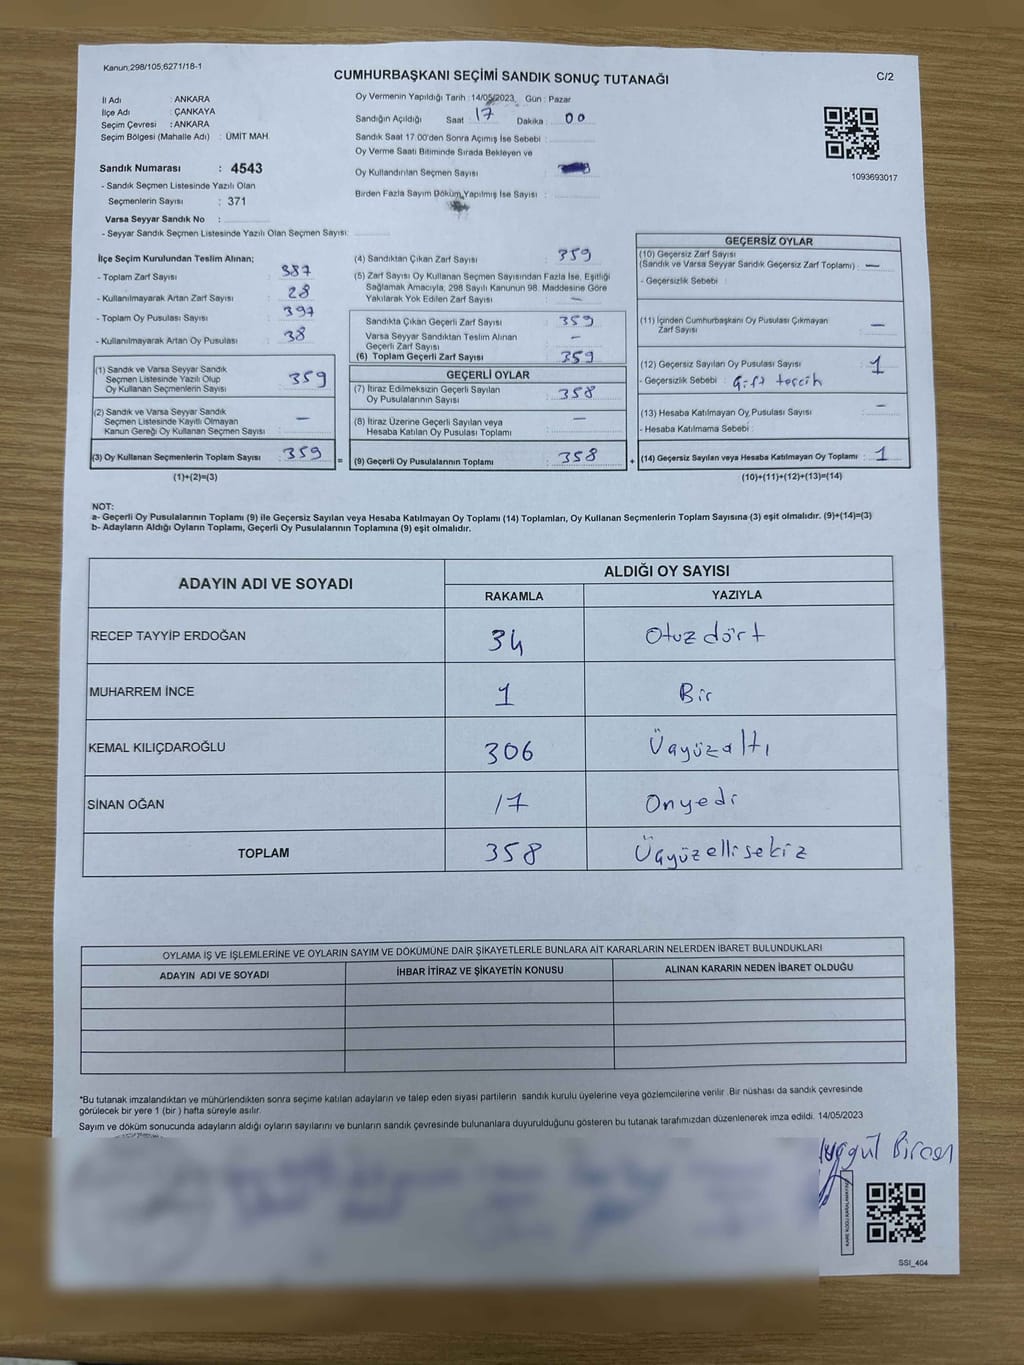 Kanun,298/105,6271/18-1
CUMHURBAŞKANI SEÇİMİ SANDIK SONUÇ TUTANAĞI
C/2
İl Adı : ANKARA
İlçe Adı : ÇANKAYA
Seçim Çevresi : ANKARA
Seçim Bölgesi (Mahalle Adı) : ÜMİT MAH.
Sandık Numarası : 4543
- Sandık Seçmen Listesinde Yazılı Olan
Seçmenlerin Sayısı : 371
Varsa Seyyar Sandık No :
- Seyyar Sandık Seçmen Listesinde Yazılı Olan Seçmen Sayısı:
Oy Vermenin Yapıldığı Tarih :14/05/2023 Gün : Pazar
Sandığın Açıldığı Saat : 17 Dakika : 00
Sandık Saat 17.00'den Sonra Açımış İse Sebebi :
Oy Verme Saati Bitiminde Sırada Bekleyen ve
Oy Kullandırılan Seçmen Sayısı :
Birden Fazla Sayım Döküm Yapılmış İse Sayısı :
1093693017
İlçe Seçim Kurulundan Teslim Alınan;
- Toplam Zarf Sayısı : 387
- Kullanılmayarak Artan Zarf Sayısı : 28
- Toplam Oy Pusulası Sayısı : 397
- Kullanılmayarak Artan Oy Pusulası : 38
(1) Sandık ve Varsa Seyyar Sandık
Seçmen Listesinde Yazılı Olup
Oy Kullanan Seçmenlerin Sayısı : 359
(2) Sandık ve Varsa Seyyar Sandık
Seçmen Listesinde Kayıtlı Olmayan
Kanun Gereği Oy Kullanan Seçmen Sayısı : –
(3) Oy Kullanan Seçmenlerin Toplam Sayısı : 359
(1)+(2)=(3)
=
(4) Sandıktan Çıkan Zarf Sayısı : 359
(5) Zarf Sayısı Oy Kullanan Seçmen Sayısından Fazla İse, Eşitliği
Sağlamak Amacıyla, 298 Sayılı Kanunun 98. Maddesine Göre
Yakılarak Yok Edilen Zarf Sayısı : –
Sandıkta Çıkan Geçerli Zarf Sayısı : 359
Varsa Seyyar Sandıktan Teslim Alınan
Geçerli Zarf Sayısı : –
(6) Toplam Geçerli Zarf Sayısı : 359
GEÇERLİ OYLAR
(7) İtiraz Edilmeksizin Geçerli Sayılan
Oy Pusulalarının Sayısı : 358
(8) İtiraz Üzerine Geçerli Sayılan veya
Hesaba Katılan Oy Pusulası Toplamı : –
(9) Geçerli Oy Pusulalarının Toplamı : 358
+
GEÇERSİZ OYLAR
(10) Geçersiz Zarf Sayısı
(Sandık ve Varsa Seyyar Sandık Geçersiz Zarf Toplamı) : –
- Geçersizlik Sebebi :
(11) İçinden Cumhurbaşkanı Oy Pusulası Çıkmayan
Zarf Sayısı : –
(12) Geçersiz Sayılan Oy Pusulası Sayısı : 1
- Geçersizlik Sebebi : Çift tercih
(13) Hesaba Katılmayan Oy Pusulası Sayısı : –
- Hesaba Katılmama Sebebi :
(14) Geçersiz Sayılan veya Hesaba Katılmayan Oy Toplamı : 1
(10)+(11)+(12)+(13)=(14)
NOT:
a- Geçerli Oy Pusulalarının Toplamı (9) ile Geçersiz Sayılan veya Hesaba Katılmayan Oy Toplamı (14) Toplamları, Oy Kullanan Seçmenlerin Toplam Sayısına (3) eşit olmalıdır. (9)+(14)=(3)
b- Adayların Aldığı Oyların Toplamı, Geçerli Oy Pusulalarının Toplamına (9) eşit olmalıdır.
ADAYIN ADI VE SOYADI
ALDIĞI OY SAYISI
RAKAMLA YAZIYLA
RECEP TAYYİP ERDOĞAN 34 Otuz dört
MUHARREM İNCE 1 Bir
KEMAL KILIÇDAROĞLU 306 Üçyüzaltı
SİNAN OĞAN 17 Onyedi
TOPLAM 358 Üçyüzellisekiz
OYLAMA İŞ VE İŞLEMLERİNE VE OYLARIN SAYIM VE DÖKÜMÜNE DAİR ŞİKAYETLERLE BUNLARA AİT KARARLARIN NELERDEN İBARET BULUNDUKLARI
ADAYIN ADI VE SOYADI İHBAR İTİRAZ VE ŞİKAYETİN KONUSU ALINAN KARARIN NEDEN İBARET OLDUĞU
*Bu tutanak imzalandıktan ve mühürlendikten sonra seçime katılan adayların ve talep eden siyasi partilerin sandık kurulu üyelerine veya gözlemcilerine verilir .Bir nüshası da sandık çevresinde
görülecek bir yere 1 (bir ) hafta süreyle asılır.
Sayım ve döküm sonucunda adayların aldığı oyların sayılarını ve bunların sandık çevresinde bulunanlara duyurulduğunu gösteren bu tutanak tarafımızdan düzenlenerek imza edildi. 14/05/2023
Bircan
KARE KODU KARALAMAYINIZ
SSI_404